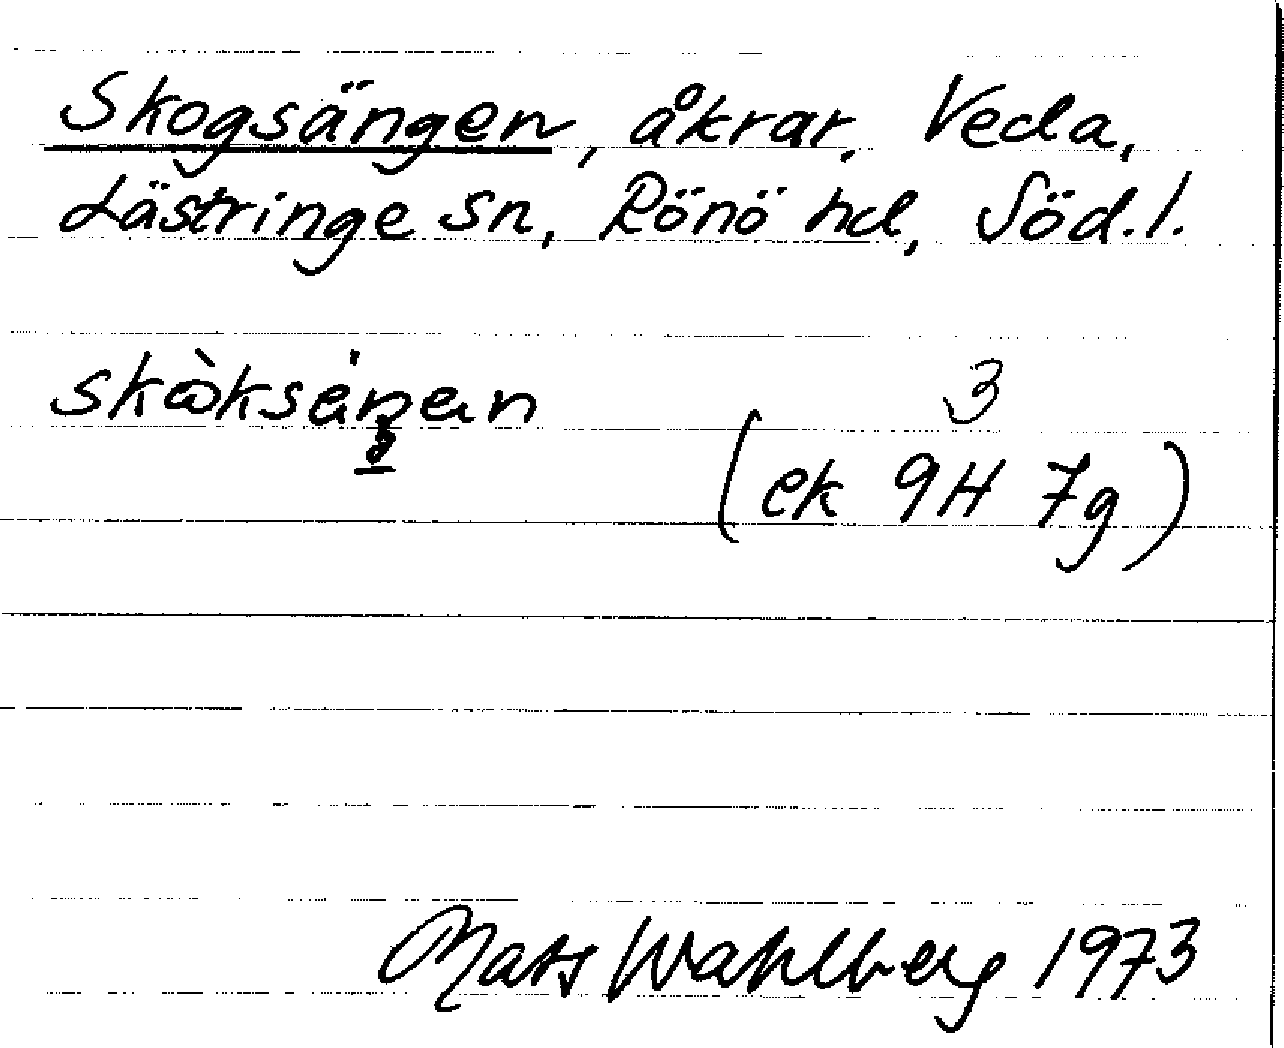 Skogsängen, åkrar, Veda,
Lästringe sn, Rönö hd, Söd.l.
3
(ek 9H 7g)
Mats Wahlberg 1973